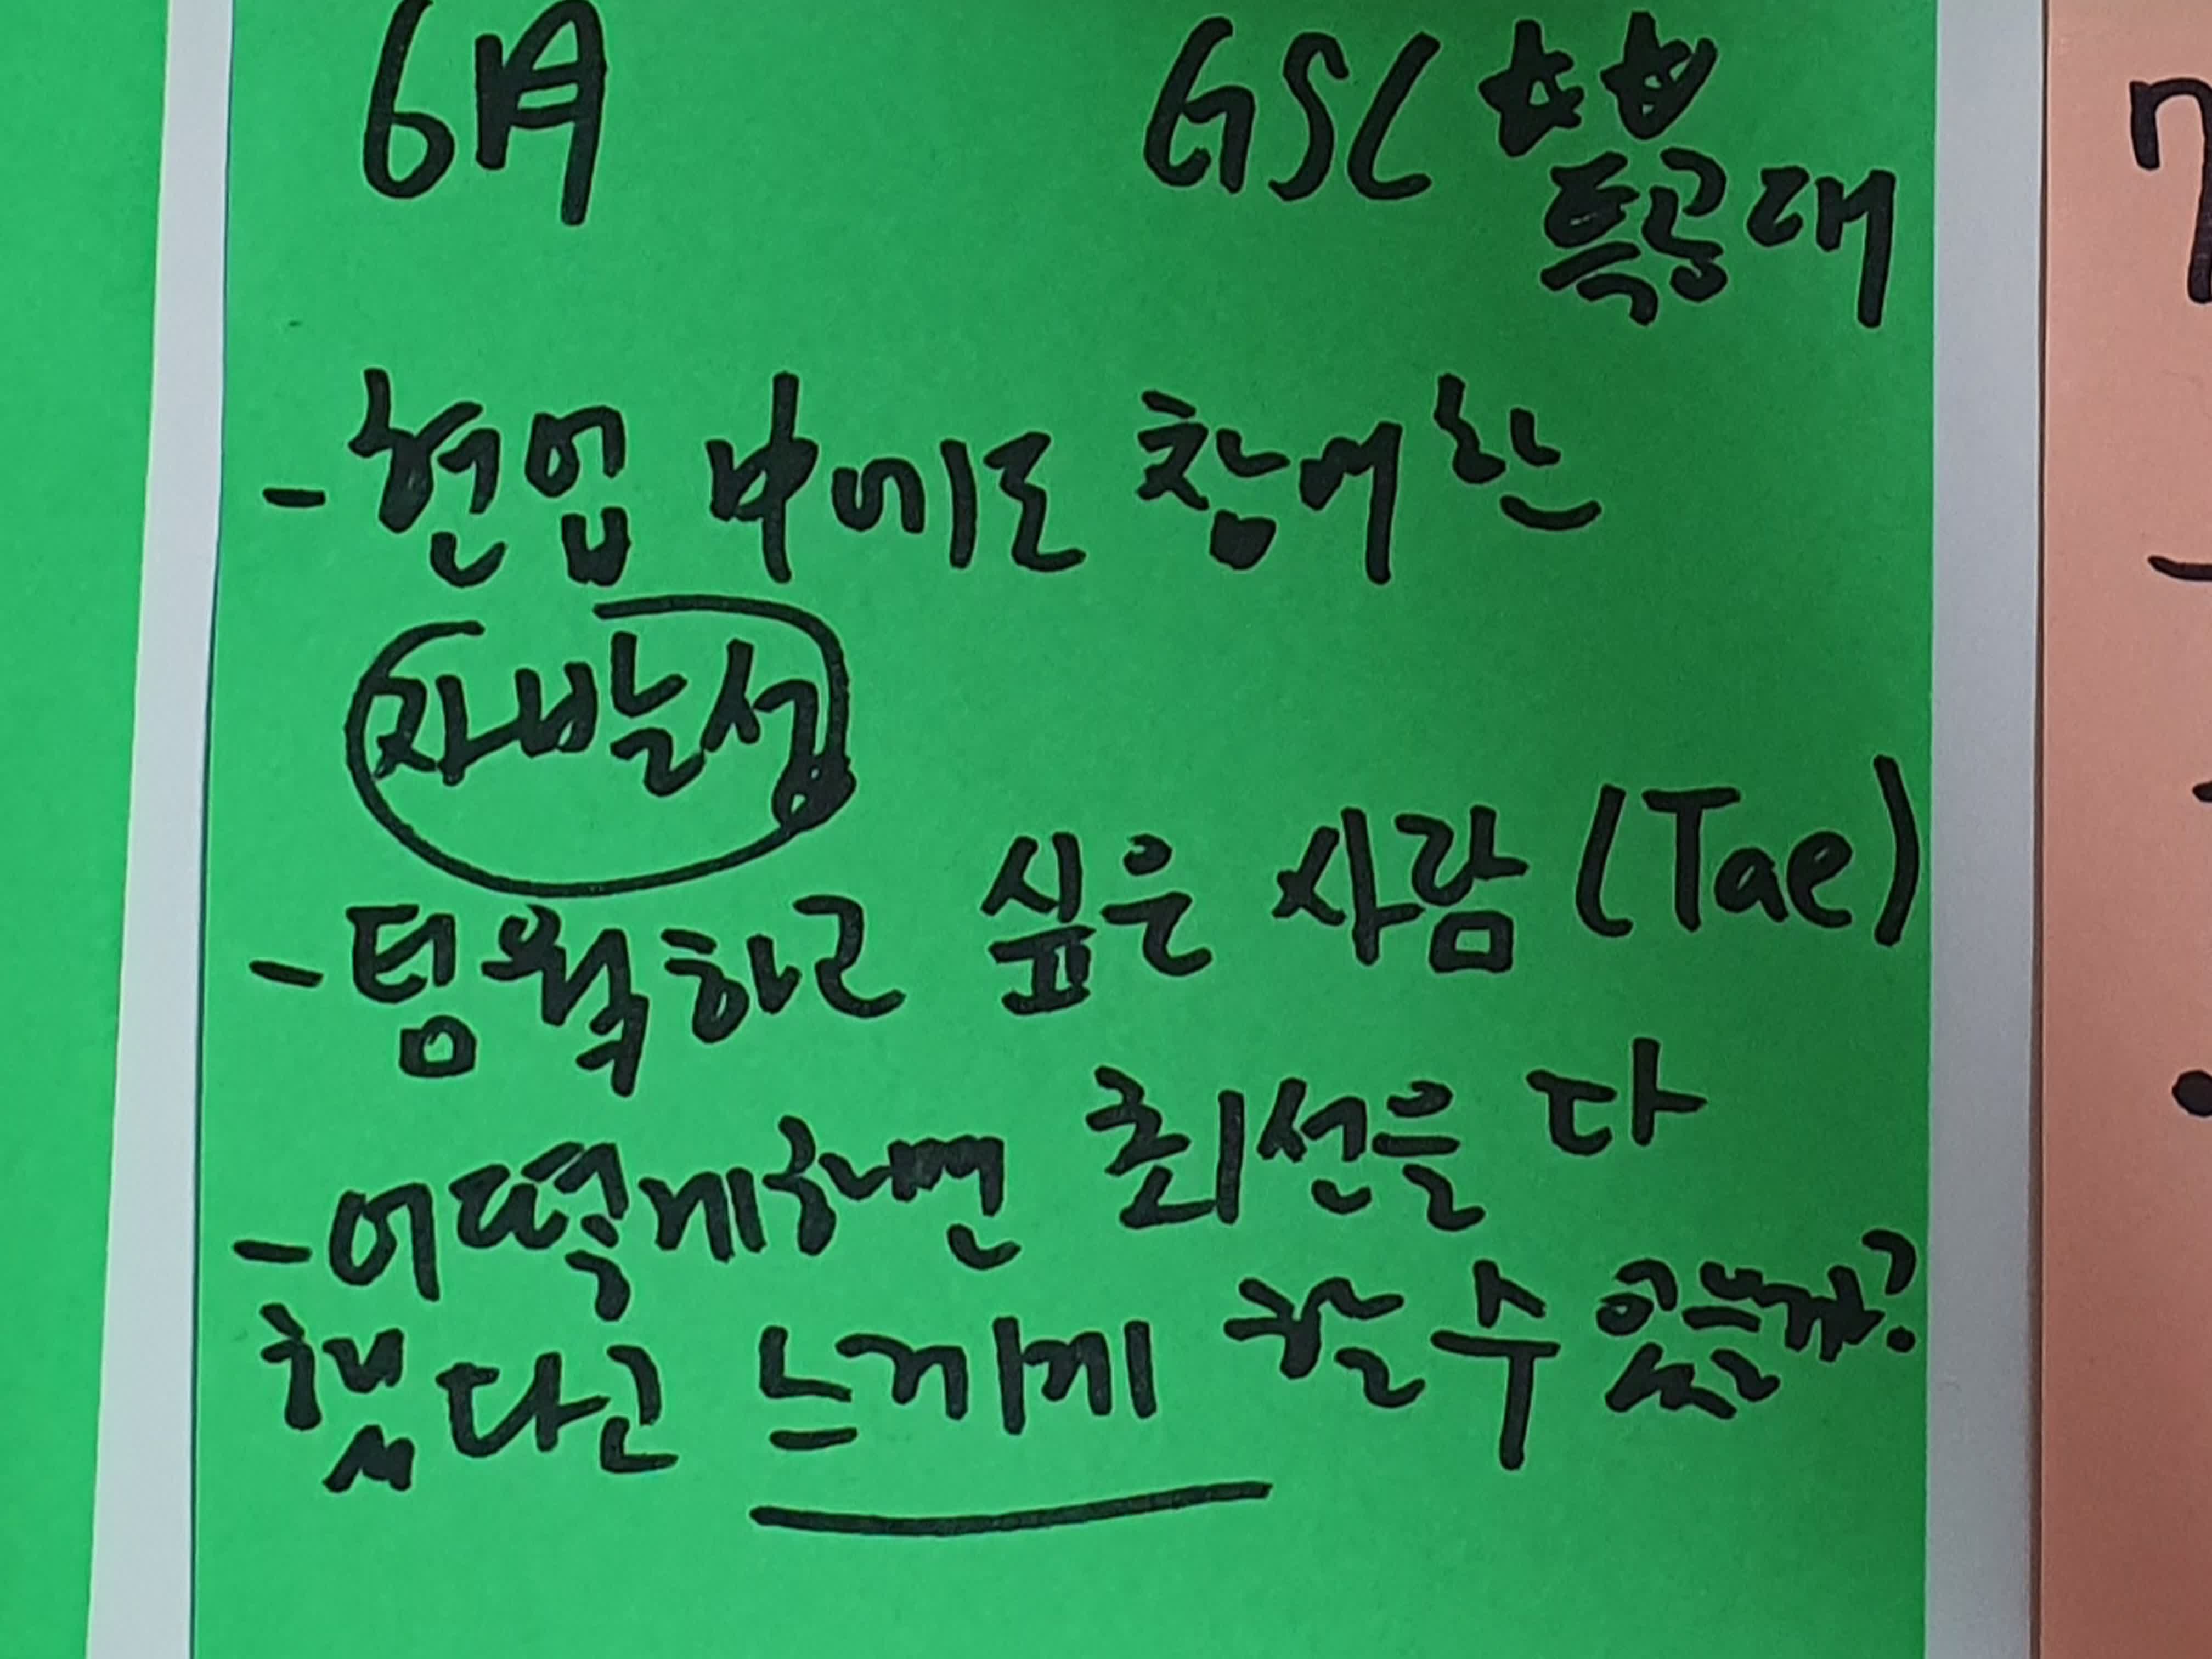 6月 GSC ★★
특공대
- 현업 中에도 참여한
자발성
- 팀웍하고 싶은 사람 (Tae)
- 어떻게하면 최선을 다
했다고 느끼게 할 수 있을까?